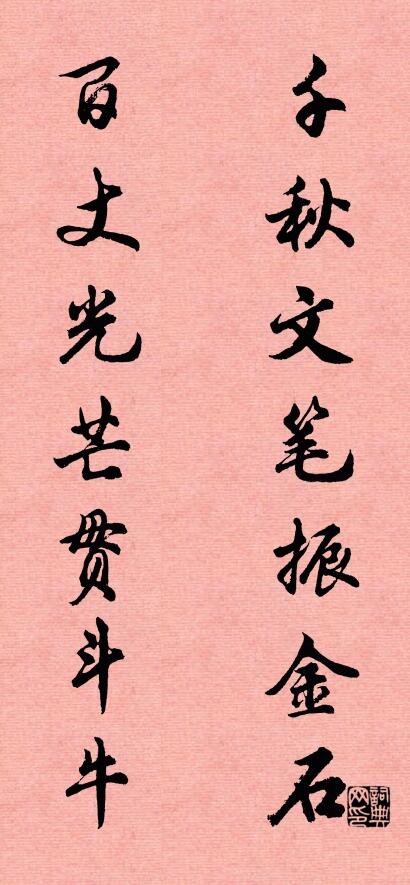 千秋文笔振金石
百丈光芒贯斗牛
詞典网印